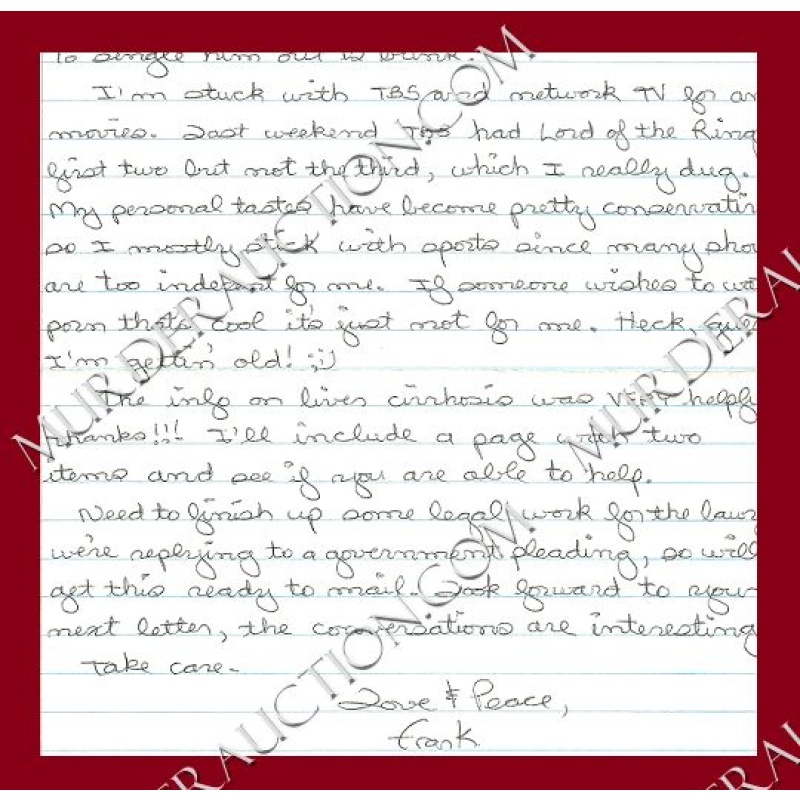 To single him out is
I'm stuck with TBS and network TV for an
movies. Last weekend TBS had Lord of the Ring
first two but not the third, which I really dug.
My personal tastes have become pretty conservativ
so I mostly stick with sports since many sho
are too indecent for me. If someone wishes to wat
porn thats cool it's just not for me. Heck, gues
I'm gettin' old! ;i)
The info on liver cirrhosis was VERY helpfu
thanks!!! I'll include a page with two
items and see if you are able to help.
Need to finish up some legal work for the lawy
we're replying to a government pleading, so will
get this ready to mail. Look forward to your
next letter, the conversations are interesting
Take care.
Love & Peace,
Frank
MURDERAUCTION.COM
MURDERAUCTION.COM
MURDERA
MURDERA